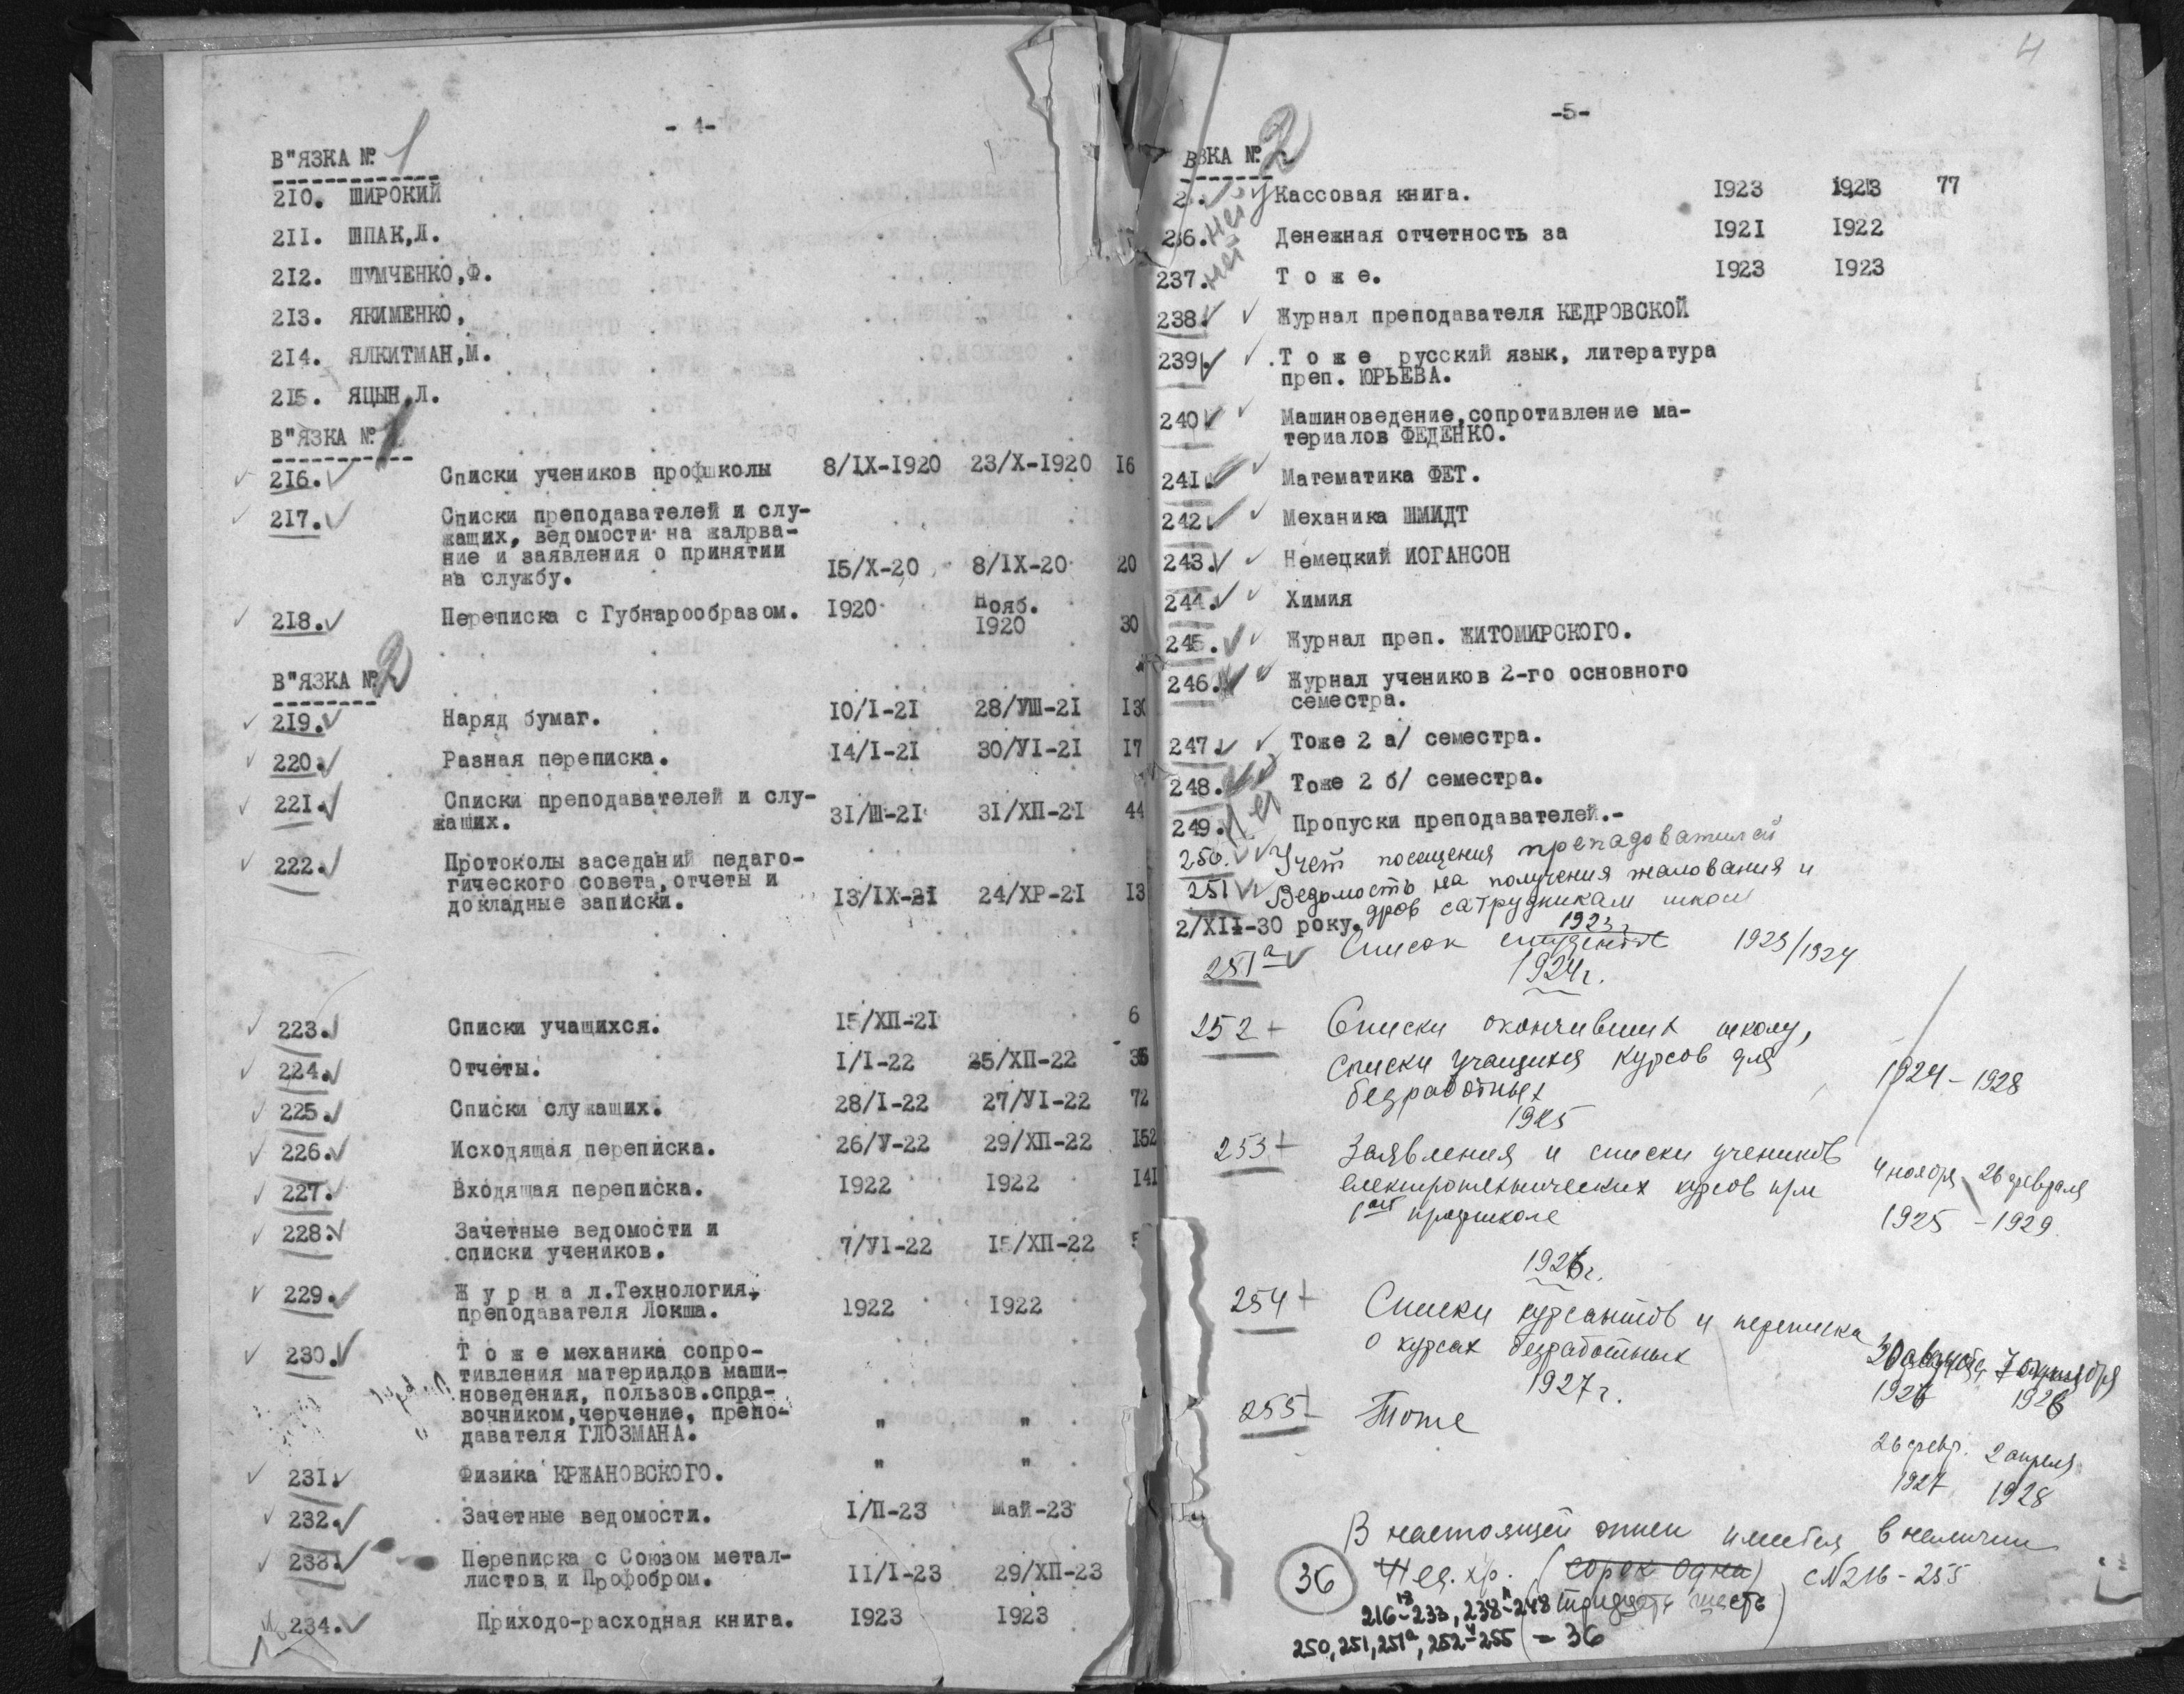 - 4-
В"ЯЗКА № 1
210. ШИРОКИЙ
211. ШПАК,Л.
212. ШУМЧЕНКО,Ф.
213. ЯКИМЕНКО,
214. ЯЛКИТМАН,М.
215. ЯЦЫН,Л.
В"ЯЗКА № 1
216. Списки учеников профшколы 8/IX-1920 23/X-1920 16
217. Списки преподавателей и слу-
жащих, ведомости на жалрва-
ние и заявления о принятии
на службу. 15/X-20 8/IX-20 20
218. Переписка с Губнарообразом. 1920 Нояб.
1920 30
В"ЯЗКА № 2
219. Наряд бумаг. 10/I-21 28/УШ-21 130
220. Разная переписка. 14/I-21 30/УI-21 17
221. Списки преподавателей и слу-
жащих. 31/Ш-21 31/ХП-21 44
222. Протоколы заседаний педаго-
гического совета, отчеты и
докладные записки. 13/IX-21 24/ХР-21 13
223. Списки учащихся. 15/ХП-21 6
224. Отчеты. I/I-22 25/ХП-22 36
225. Списки служащих. 28/I-22 27/УI-22 72
226. Исходящая переписка. 26/У-22 29/ХП-22 152
227. Входящая переписка. 1922 1922 141
228. Зачетные ведомости и
списки учеников. 7/УI-22 15/ХП-22 5
229. Ж у р н а л. Технология,
преподавателя Локша. 1922 1922
230. Т о ж е механика сопро-
тивления материалов маши-
новедения, пользов.спра-
вочником, черчение, препо-
давателя ГЛОЗМАНА. " "
231. Физика КРЖАНОВСКОГО. " "
232. Зачетные ведомости. I/П-23 Май-23
233. Переписка с Союзом метал-
листов и Профобром. 11/I-23 29/ХП-23
234. Приходо-расходная книга. 1923 1923
4
-5-
ВЗКА № 2
2 . нет Кассовая книга. 1923 1923 77
236. нет Денежная отчетность за 1921 1922
237. нет Т о ж е. 1923 1923
238. Журнал преподавателя КЕДРОВСКОЙ
239. Т о ж е русский язык, литература
преп. ЮРЬЕВА.
240 Машиноведение, сопротивление ма-
териалов ФЕДЕНКО.
241. Математика ФЕТ.
242. Механика ШМИДТ
243. Немецкий ИОГАНСОН
244. Химия
245. Журнал преп. ЖИТОМИРСКОГО.
246. Журнал учеников 2-го основного
семестра.
247. Тоже 2 а/ семестра.
248. Тоже 2 б/ семестра.
249. Пропуски преподавателей.-
250. Учет посещения преподоватилей
251 Ведомость на получения жалования и
дров сатрудникам школ
2/XII-30 року.
1923г
251а Список студентов 1923/1924
1924г.
252 + Списки окончивших школу,
списки учащихся курсов для
безработных 1924-1928
1925
253 + Заявления и списки учеников
електротехнических курсов при
1ой профшколе 4 ноября 26 февраля
1925 - 1929
1926г.
254 + Списки курсантов и переписка
о курсах безработных 20 августа 7 октября
1926 1926
1927г.
255 + Тоже
26 февр. 2 апреля
1927 1928
В настоящей описи имеется в наличии
36 41 ед. хр. (сорок одна) с №216-255
216-233, 238-248 тридцать шесть
250, 251, 251а, 252-255 = 36